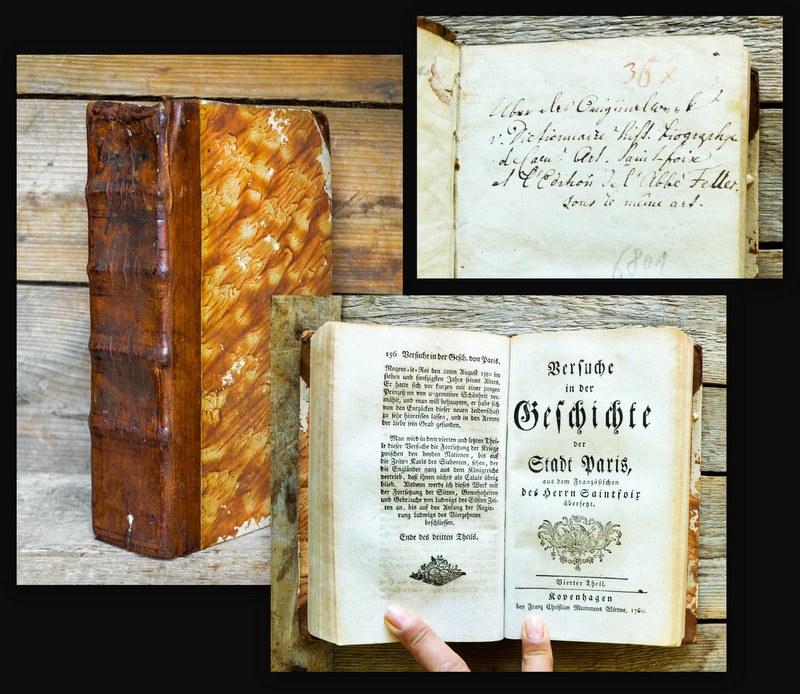 36 x
Über des Originalwerk
v. Dictionnaire hist. biographe
de Caen. Art. Saint-foix
et l'Edition de l'Abbé Feller.
sous le même art.
156 Versuche in der Gesch. von Paris,
Nogent-le-Roi den 22ten August 1350 im
sieben und funfzigsten Jahre seines Alters.
Er hatte sich vor kurzen mit einer jungen
Prinzeßinn von ungemeiner Schönheit ver-
mählt, und man will behaupten, er habe sich
von den Entzücken dieser neuen Leidenschaft
zu sehr hinreissen lassen, und in den Armen
der Liebe sein Grab gefunden.
Man wird in dem vierten und letzten Thei-
le dieser Versuche die Fortsetzung der Kriege
zwischen den beyden Nationen, bis auf
die Zeiten Karls des Siebenten, sehen, der
die Engländer ganz aus dem Königreiche
vertrieb, daß ihnen nichts als Calais übrig
blieb. Alsdenn werde ich dieses Werk mit
der Fortsetzung der Sitten, Gewohnheiten
und Gebräuche von Ludwigs des Eilften Zei-
ten an, bis auf den Anfang der Regie-
rung Ludwigs des Vierzehnten
beschliessen.
Ende des dritten Theils.
Versuche
in der
Geschichte
der
Stadt Paris,
aus dem Französischen
des Herrn Saintfoix
übersetzt.
Vierter Theil.
Kopenhagen
bey Franz Christian Mummens Wittwe, 1760.